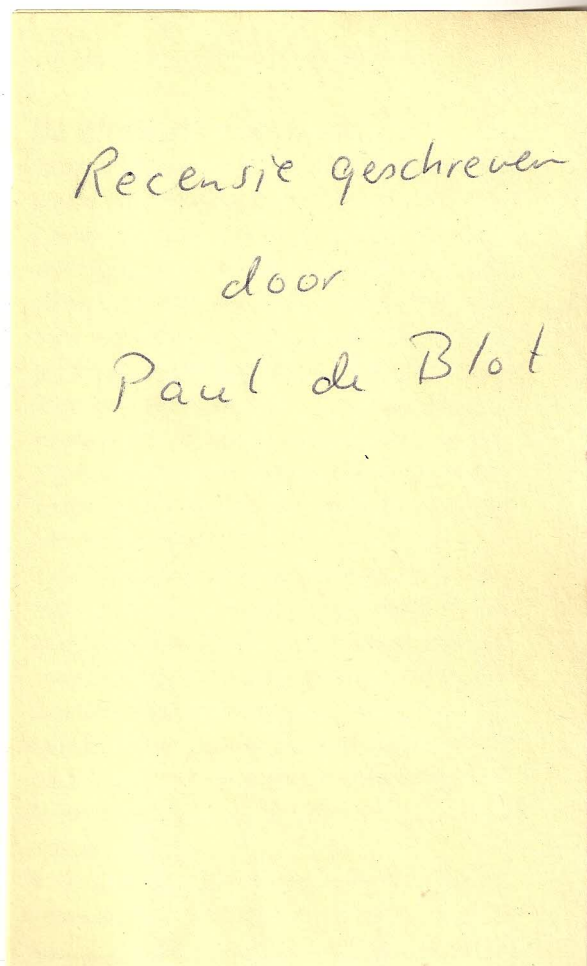 Recensie geschreven
door
Paul de Blot